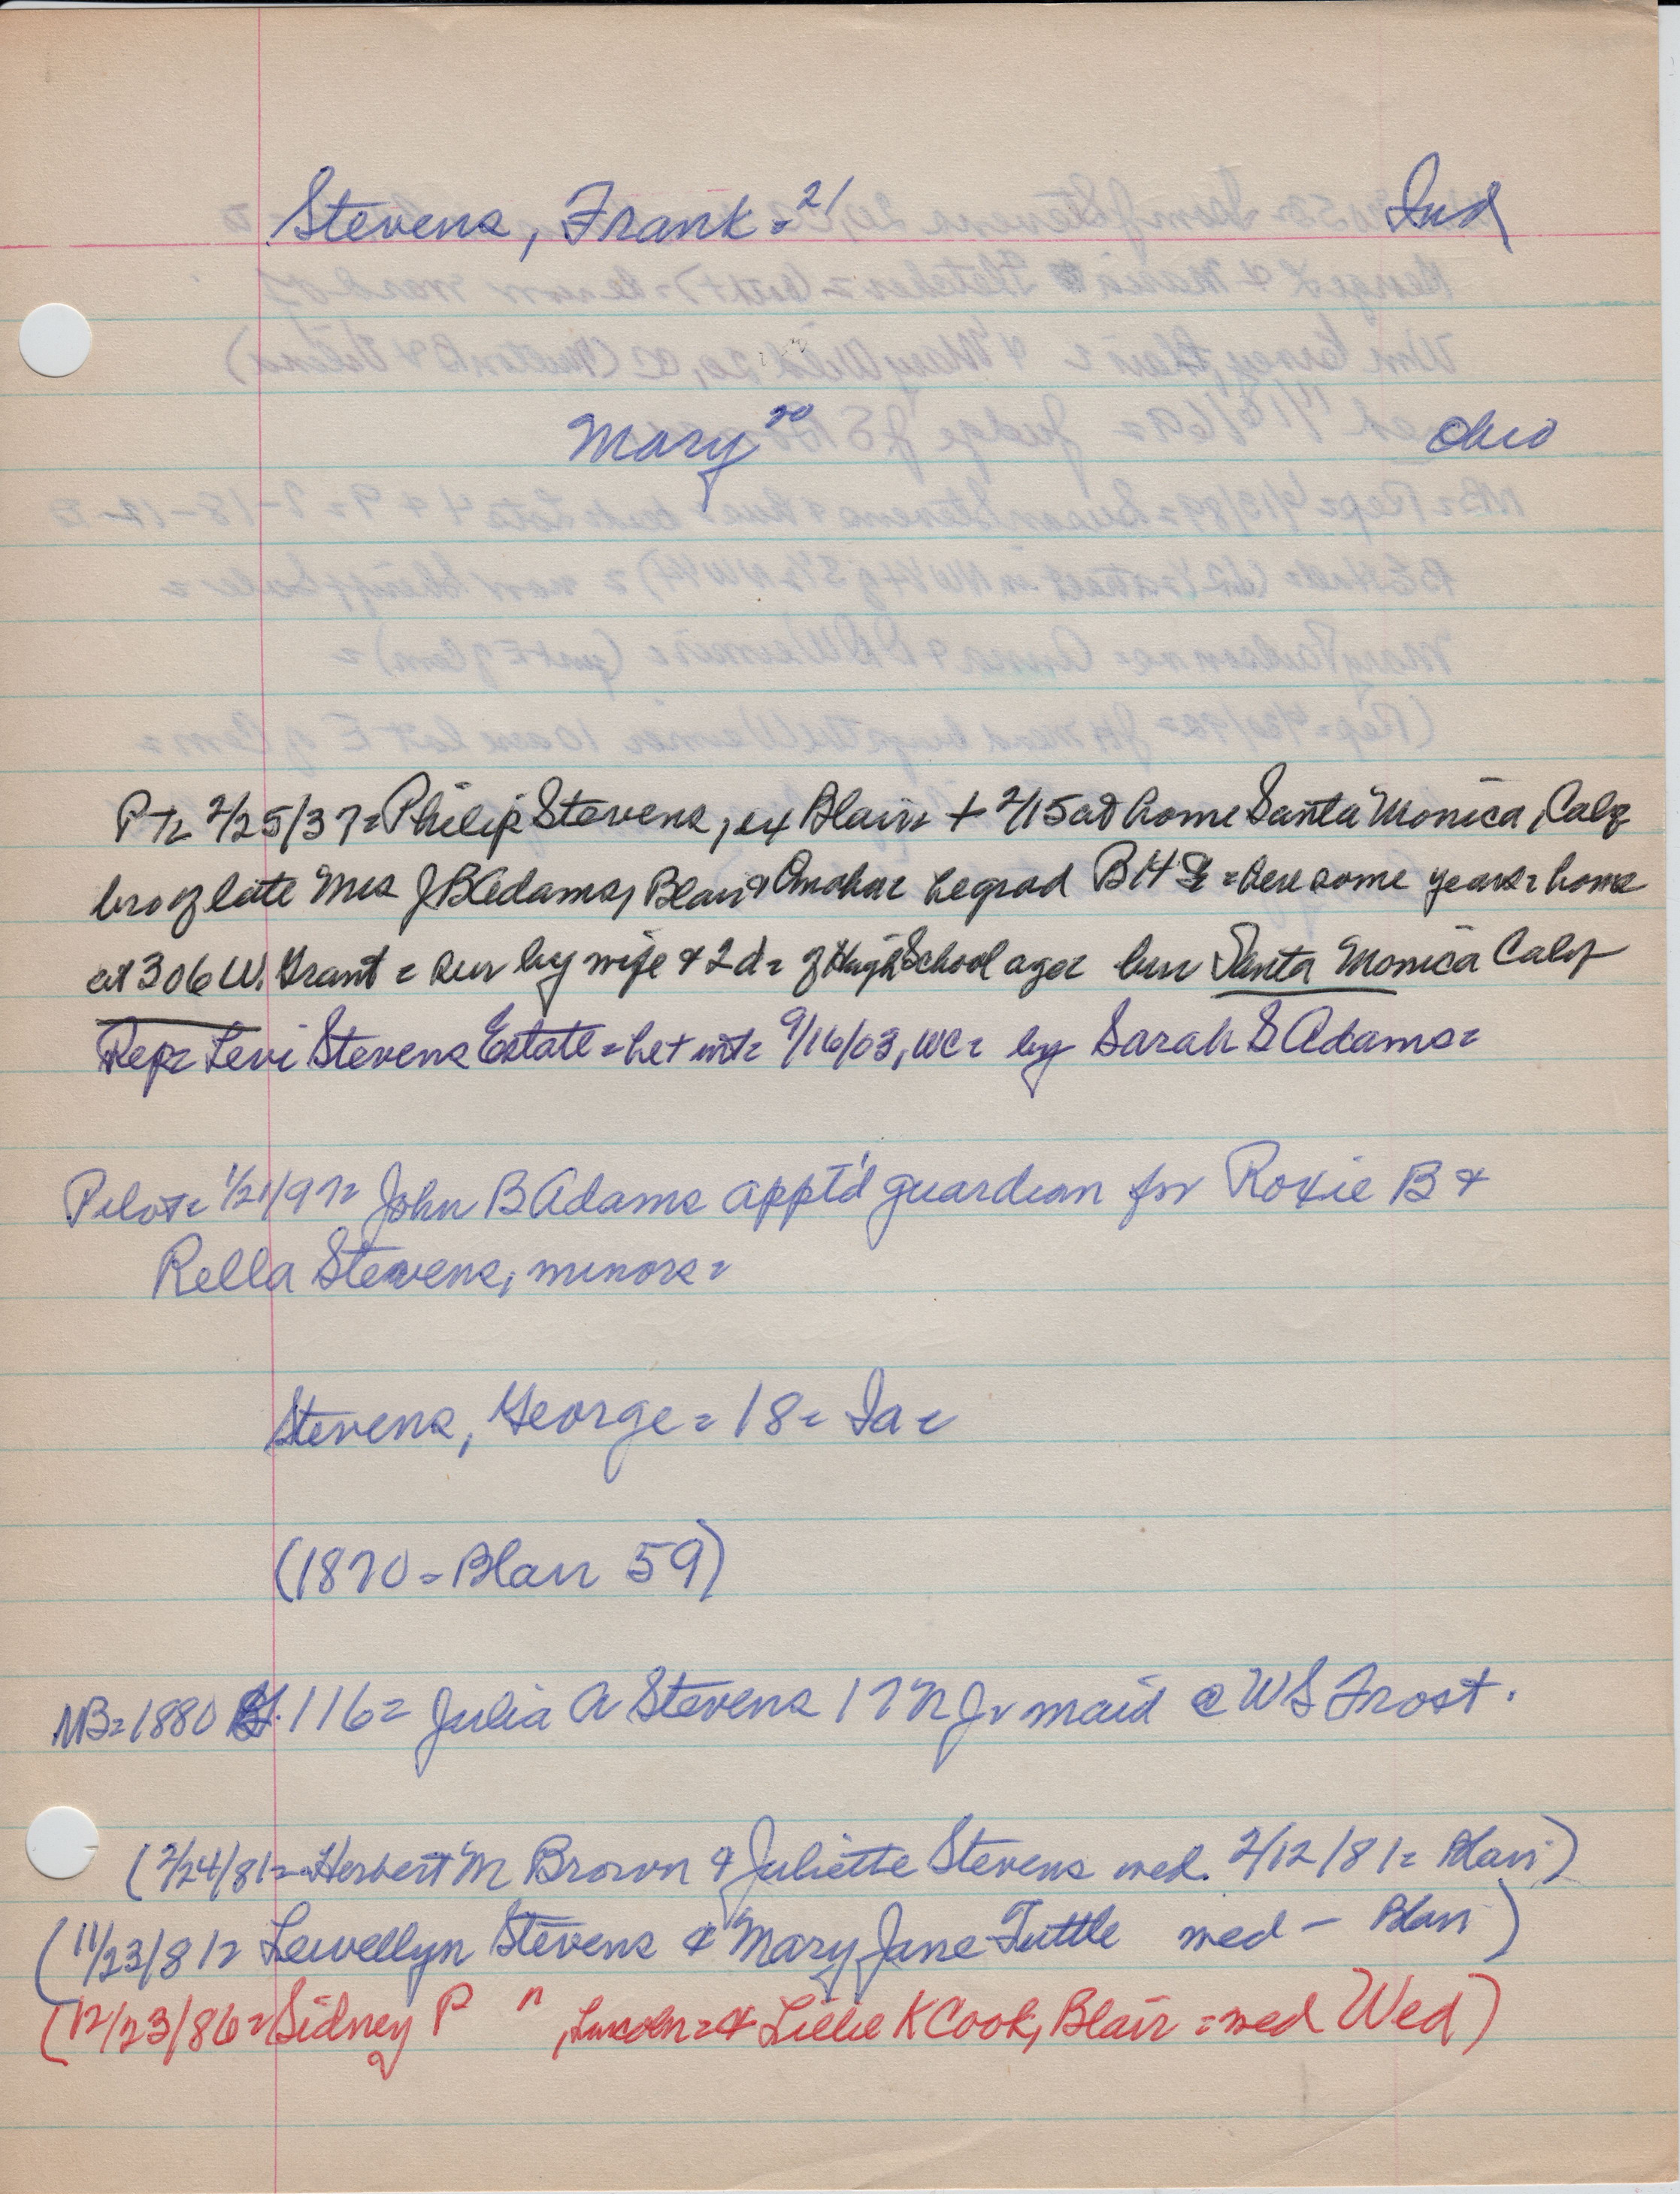 Stevens, Frank = 21 Ind
Mary 20 Ohio
PT= 2/25/37= Philip Stevens, ex Blair= + 2/15 at home Santa Monica, Calf
bro of late Mrs J B Adams, Blair & Omaha= he grad BHS = here some years= home
at 306 W. Grant = sur by wife & 2 d= of High School age= bur Santa Monica Calf
Rep= Levi Stevens Estate = het wt= 9/16/03, WC= by Sarah S Adams=
Pilot= 1/21/97= John B Adams appt'd guardian for Roxie B &
Rella Stevens, minors=
Stevens, George = 18 = Ia =
(1870 = Blair 59)
NB= 1880 116= Julia A Stevens 17 NJ= maid @ W S Frost.
(2/24/81= Herbert M Brown & Juliette Stevens wed. 2/12/81= Blair)
(11/23/81= Lewellyn Stevens & Mary Jane Tuttle wed - Blair)
(12/23/86= Sidney P " , Lincoln= & Lillie K Cook, Blair = wed Wed)